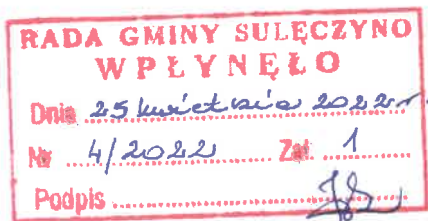 RADA GMINY SULĘCZYNO
WPŁYNĘŁO
Dnia 25 kwietnia 2022 r.
Nr 4/2022 Zał. 1
Podpis